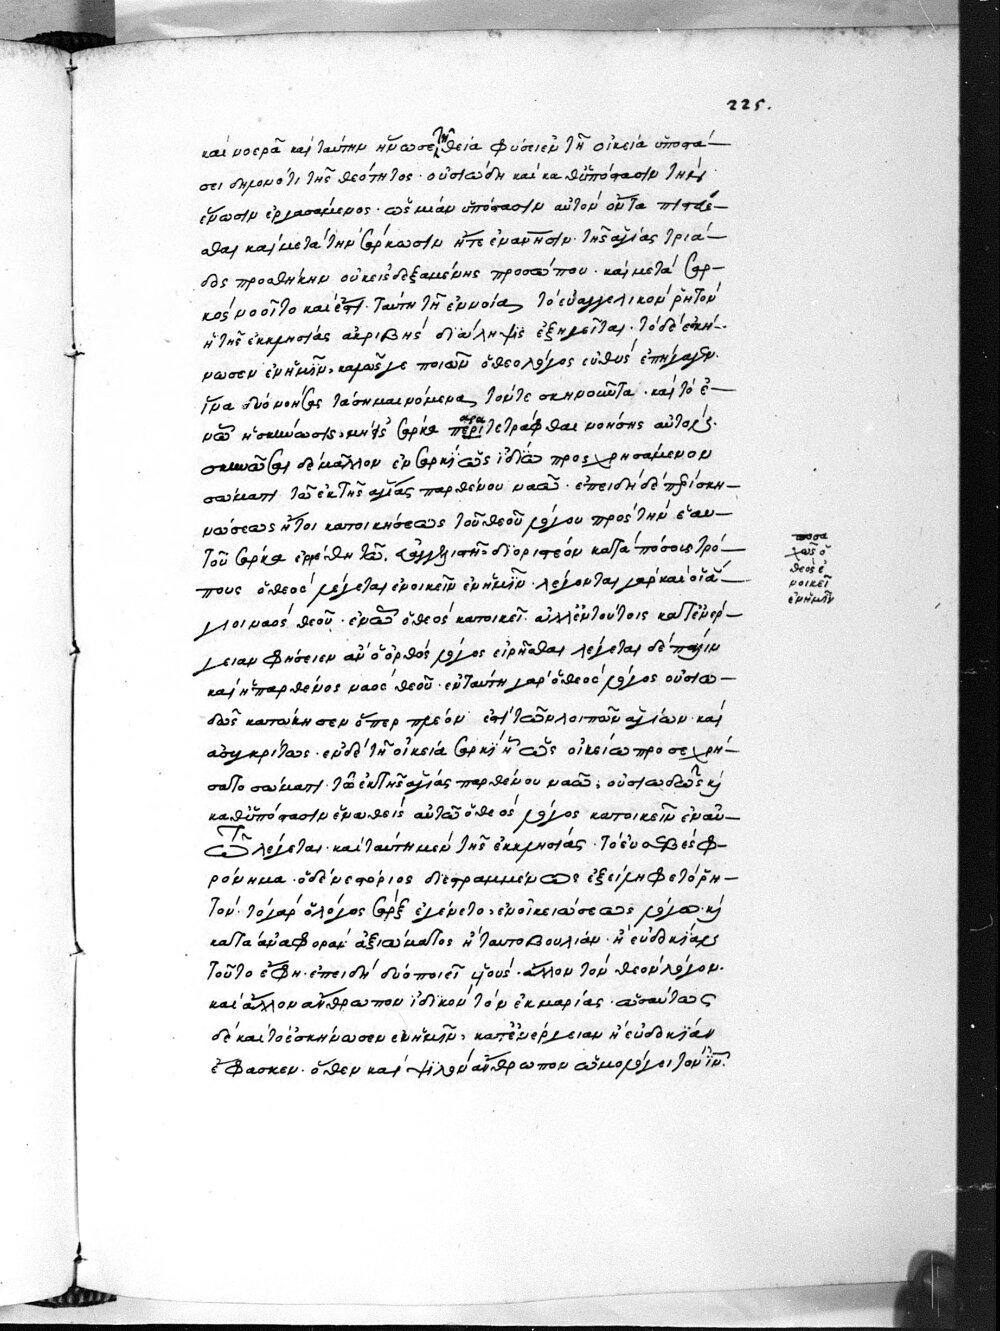 225.
καὶ νοερᾶ καὶ ταύτην ἥνωσε τῆ θεία φύσει ἐν τῆ οἰκεία ὑποστά-
σει δηλονότι τῆς θεότητος· οὐσιώδη καὶ καθ' ὑπόστασιν τὴν
ἕνωσιν ἐργασάμενος· ὡς μίαν ὑπόστασιν αὐτὸν ὄντα
καὶ μετὰ τὴν σάρκωσιν τῆς ἁγίας τριά-
δος προσθήκην οὐκ εἰσδεξαμένης προσώπου· καὶ μετὰ σαρ-
κὸς νοοῖτο ταύτη τῆ ἐννοία, τὸ εὐαγγελικὸν ῥητὸν
ἡ τῆς ἐκκλησίας ἀκριβὴς διάληψις ἐξηγεῖται. τὸ δὲ ἐσκή-
νωσεν ἐν ἡμῖν, ποιῶν ὁ θεολόγος εὐθὺς ἐπήγαγεν·
ἵνα δύο νοήσης τὰ σημαινόμενα, τόν τε σκηνοῦντα· καὶ τὸ ἐ-
ν ᾧ ἡ σκήνωσις, σάρκα περιτετράφθαι νοήσης αὐτὸν εἰς·
σκηνῶσαι δὲ μᾶλλον ἐν σαρκὶ ὡς ἰδίω προσχρησάμενον
σώματι τῶ ἐκ τῆς ἁγίας παρθένου ναῶ· ἐπειδὴ δὲ περὶ σκη-
νώσεως ἤτοι κατοικήσεως τοῦ θεοῦ λόγου πρὸς τὴν ἑαυ-
τοῦ σάρκα ἐρρέθη τῶ εὐαγγελιστῆ· διοριστέον κατὰ πόσους τρό-
πους ὁ θεὸς λέγεται ἐνοικεῖν ἐν ἡμῖν· λέγονται γὰρ καὶ οἱ ἅ-
γιοι ναὸς θεοῦ· ἐν ᾧ ὁ θεὸς κατοικεῖ· ἀλλ' ἐν τούτοις κατ' ἐνέρ-
γειαν φήσειεν ἂν ὁ ὀρθὸς λόγος εἰρῆσθαι λέγεται δὲ πάλιν
καὶ ἡ παρθένος ναὸς θεοῦ· ἐν ταύτη γὰρ ὁ θεὸς λόγος οὐσιω-
δῶς κατώκησεν ὅπερ πλέον ἐπὶ τῶν λοιπῶν ἁγίων· καὶ
ἀσυγκρίτως· ἐν δὲ τῆ οἰκεία σαρκὶ ἧ ὡς οἰκείω προσεχρή-
σατο σώματι τῶ ἐκ τῆς ἁγίας παρθένου ναῶ, οὐσιωδῶς καὶ
καθ' ὑπόστασιν ἑνωθεὶς αὐτῶ ὁ θεὸς λόγος κατοικεῖν ἐν αὐ-
τῶ λέγεται· καὶ ταύτη μὲν τῆς ἐκκλησίας· τὸ εὐσεβὲς φ-
ρόνημα· ὁ δὲ νεστόριος διεστραμμένως ἐξείληφε τὸ ῥη-
τόν· τὸ γὰρ ὁ λόγος σὰρξ ἐγένετο, ἐν οἰκειώσεως λόγω· καὶ
κατὰ ἀναφορὰν ἀξιώματος ἢ ταυτοβουλίαν· ἢ εὐδοκίας
τοῦτο ἔφη· ἐπειδὴ δύο ποιεῖ υἱούς· ἄλλον τὸν θεὸν λόγον·
καὶ ἄλλον ἄνθρωπον ἰδικὸν τὸν ἐκ μαρίας· ὡσαύτως
δὲ καὶ τὸ ἐσκήνωσεν ἐν ἡμῖν, κατ' ἐνέργειαν ἢ εὐδοκίαν
ἔφασκεν· ὅθεν καὶ ψιλὸν ἄνθρωπον ὡμολόγει τὸν ἰν.
ποσα
χῶς ὁ
θεὸς ἐ
νοικεῖ
ἐν ἡμῖν